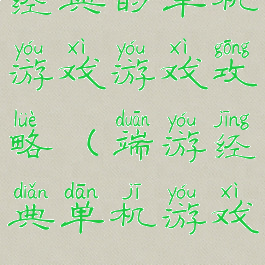 经典的单机
yóu xì yóu xì gōng
游戏游戏攻
lüè duān yóu jīng
略（端游经
diǎn dān jī yóu xì
典单机游戏